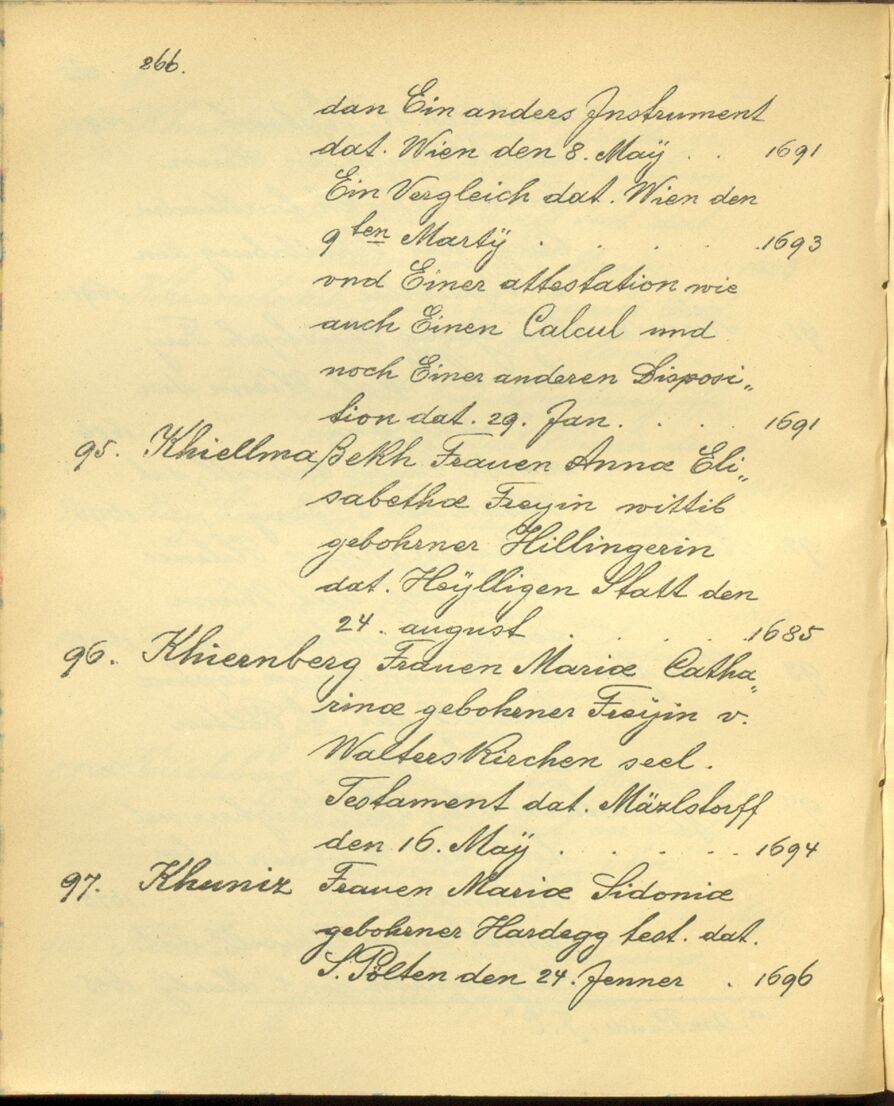 266.
dan Ein anders Instrument
dat. Wien den 8. Maÿ . . 1691
Ein Vergleich dat. Wien den
9ten Martÿ . . . . . 1693
vnd Einer attestation wie
auch Einen Calcul und
noch Einer anderen Disposi„
tion dat. 29. Jan. . . . 1691
95. Khiellmaßekh Frauen Annæ Eli„
sabethæ Freyin wittib
gebohrner Hillingerin
dat. Heÿlligen Statt den
24. august . . . . . 1685
96. Khiernberg Frauen Mariæ Catha„
rinæ gebohrner Freÿin v.
Walterskirchen seel.
Testament dat. Mäzlstorff
den 16. Maÿ . . . . . 1694
97. Khuniz Frauen Mariæ Sidoniæ
gebohrner Hardegg test. dat.
S. Pölten den 24. Jenner . 1696